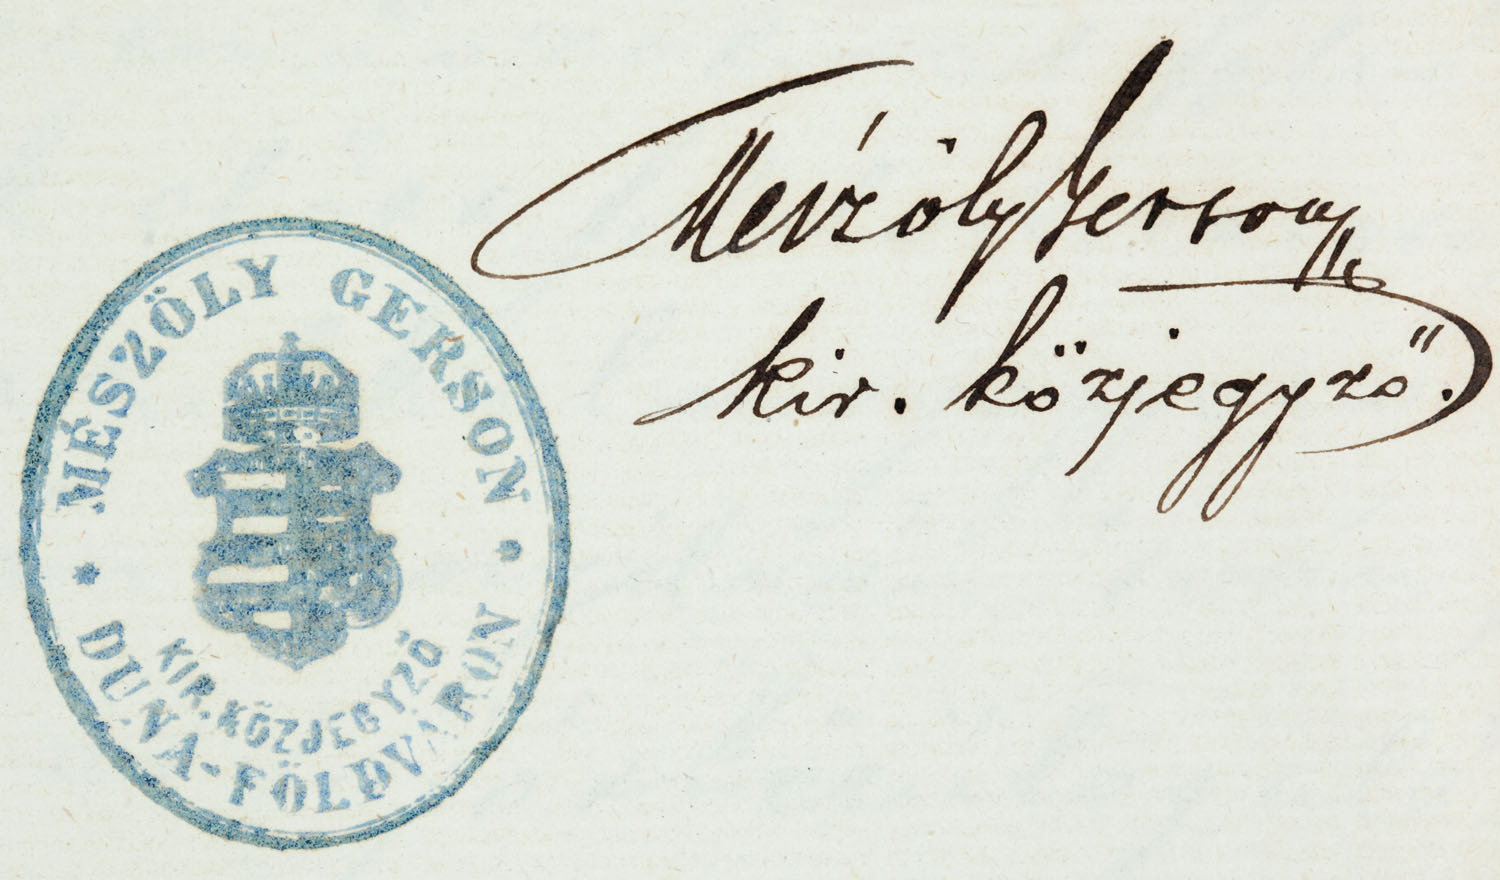 Mészöly Gerson
kir. közjegyző.
MÉSZÖLY GERSON
KIR. KÖZJEGYZŐ
DUNA-FÖLDVÁRON